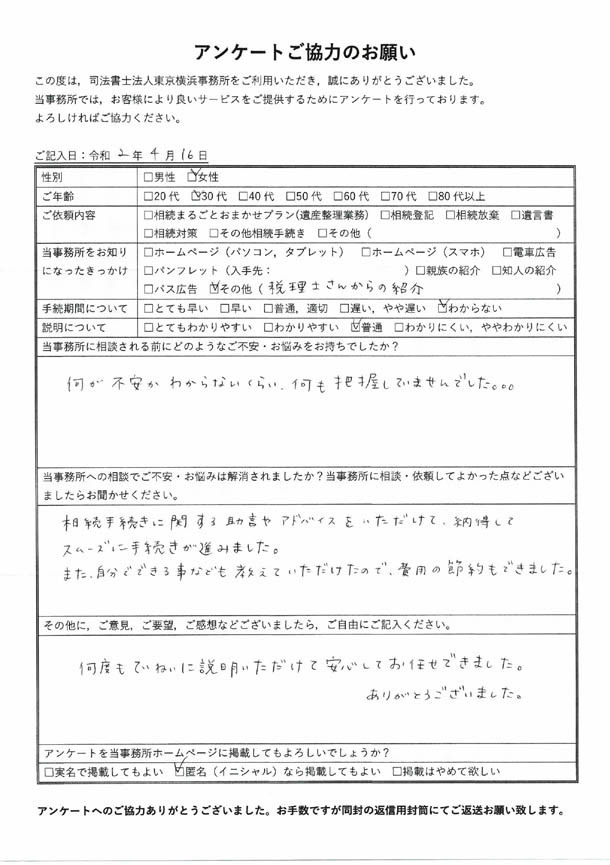 アンケートご協力のお願い
この度は，司法書士法人東京横浜事務所をご利用いただき，誠にありがとうございました。
当事務所では，お客様により良いサービスをご提供するためにアンケートを行っております。
よろしければご協力ください。
ご記入日：令和 2 年 4 月 16 日
性別 □男性 ☑女性
ご年齢 □20代 ☑30代 □40代 □50代 □60代 □70代 □80代以上
ご依頼内容 □相続まるごとおまかせプラン(遺産整理業務) □相続登記 □相続放棄 □遺言書
□相続対策 □その他相続手続き □その他（ ）
当事務所をお知り □ホームページ（パソコン，タブレット） □ホームページ（スマホ） □電車広告
になったきっかけ □パンフレット（入手先： ）□親族の紹介 □知人の紹介
□バス広告 ☑その他（ 税理士さんからの紹介 ）
手続期間について □とても早い □早い □普通，適切 □遅い，やや遅い ☑わからない
説明について □とてもわかりやすい □わかりやすい ☑普通 □わかりにくい，ややわかりにくい
当事務所に相談される前にどのようなご不安・お悩みをお持ちでしたか？
何が不安かわからないくらい、何も把握していませんでした。。。
当事務所への相談でご不安・お悩みは解消されましたか？当事務所に相談・依頼してよかった点などござい
ましたらお聞かせください。
相続手続きに関する助言やアドバイスをいただけて、納得して
スムーズに手続きが進みました。
また、自分でできる事なども教えていただけたので、費用の節約もできました。
その他に，ご意見，ご要望，ご感想などございましたら，ご自由にご記入ください。
何度もていねいに説明いただけて安心してお任せできました。
ありがとうございました。
アンケートを当事務所ホームページに掲載してもよろしいでしょうか？
□実名で掲載してもよい ☑匿名（イニシャル）なら掲載してもよい □掲載はやめて欲しい
アンケートへのご協力ありがとうございました。お手数ですが同封の返信用封筒にてご返送お願い致します。